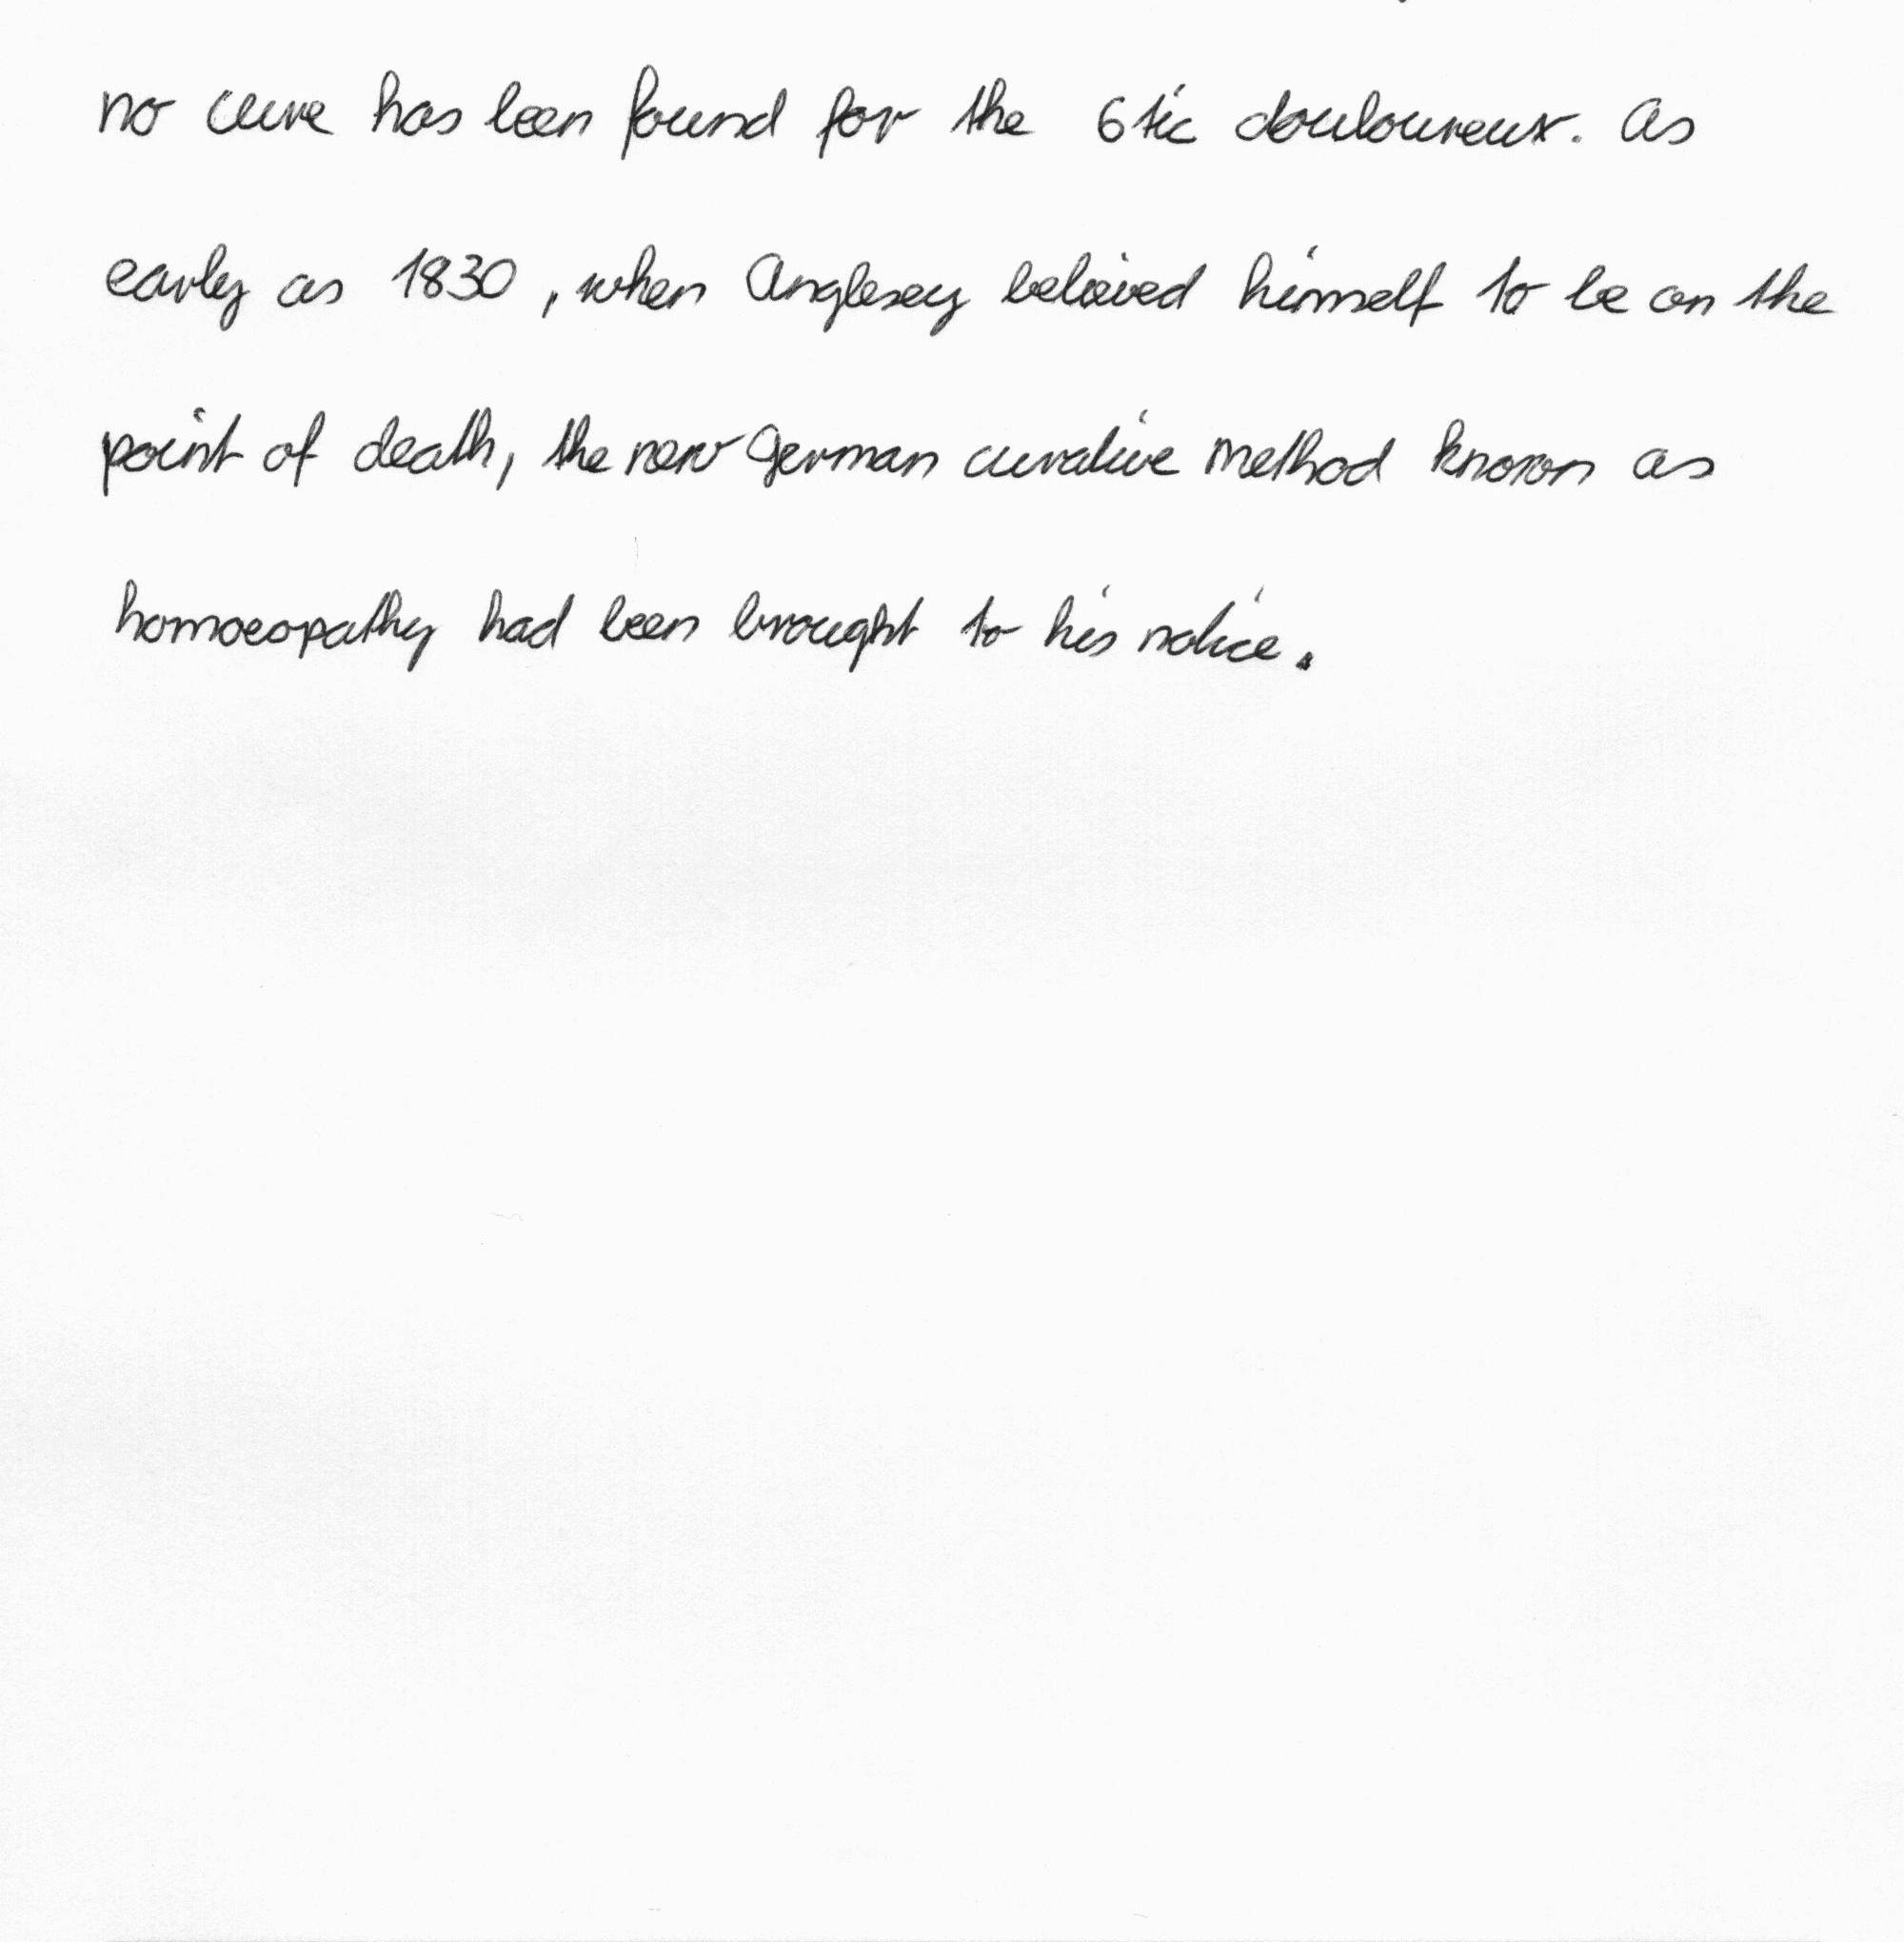 no cure has been found for the 6 tic douloureux. As
early as 1830, when Anglesey believed himself to be on the
point of death, the new German curative method known as
homoeopathy had been brought to his notice.